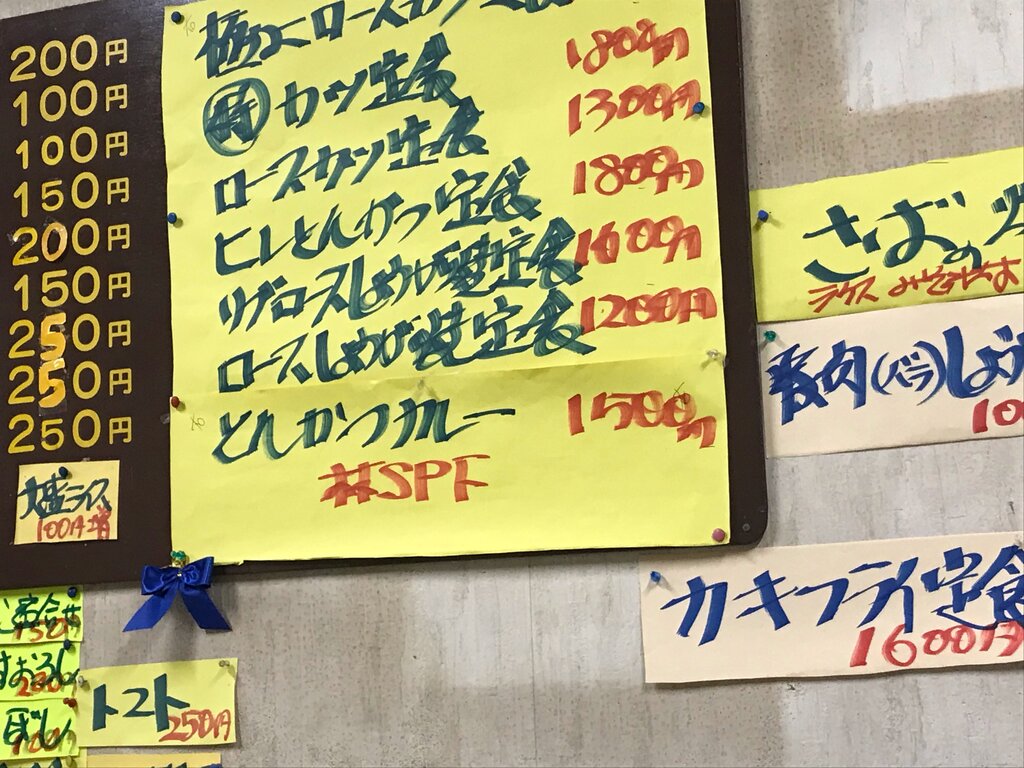 200円
100円
100円
150円
200円
150円
250円
250円
250円
大盛ライス
100円増
ロースカツ定食
1800円
カツ定食
1300円
ロースカツ定食
1800円
ヒレとんかつ定食
1600円
リブロースしょうが焼定食
1200円
ロースしょうが焼定食
とんかつカレー
1500円
林SPF
さばの
ライス みそしる
豚肉(バラ)しょう
10
カキフライ定食
1600円
トマト
250円